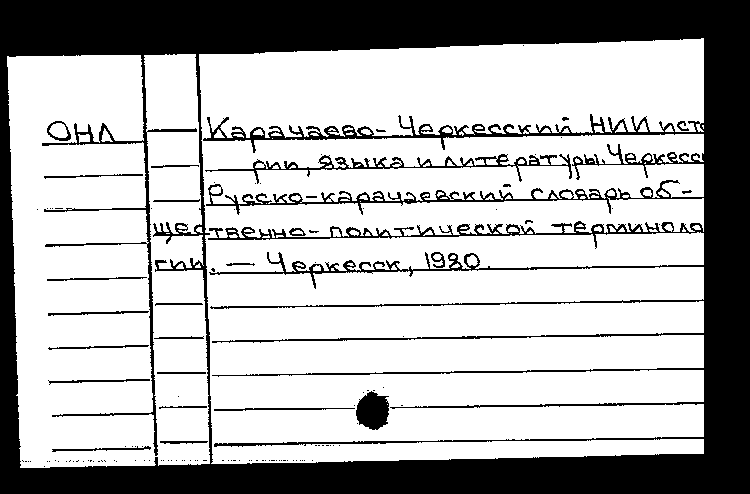 ОНЛ Карачаево-Черкесский НИИ исто
рии, языка и литературы. Черкесск
Русско-карачаевский словарь об-
щественно-политической терминоло
гии. — Черкесск, 1980.